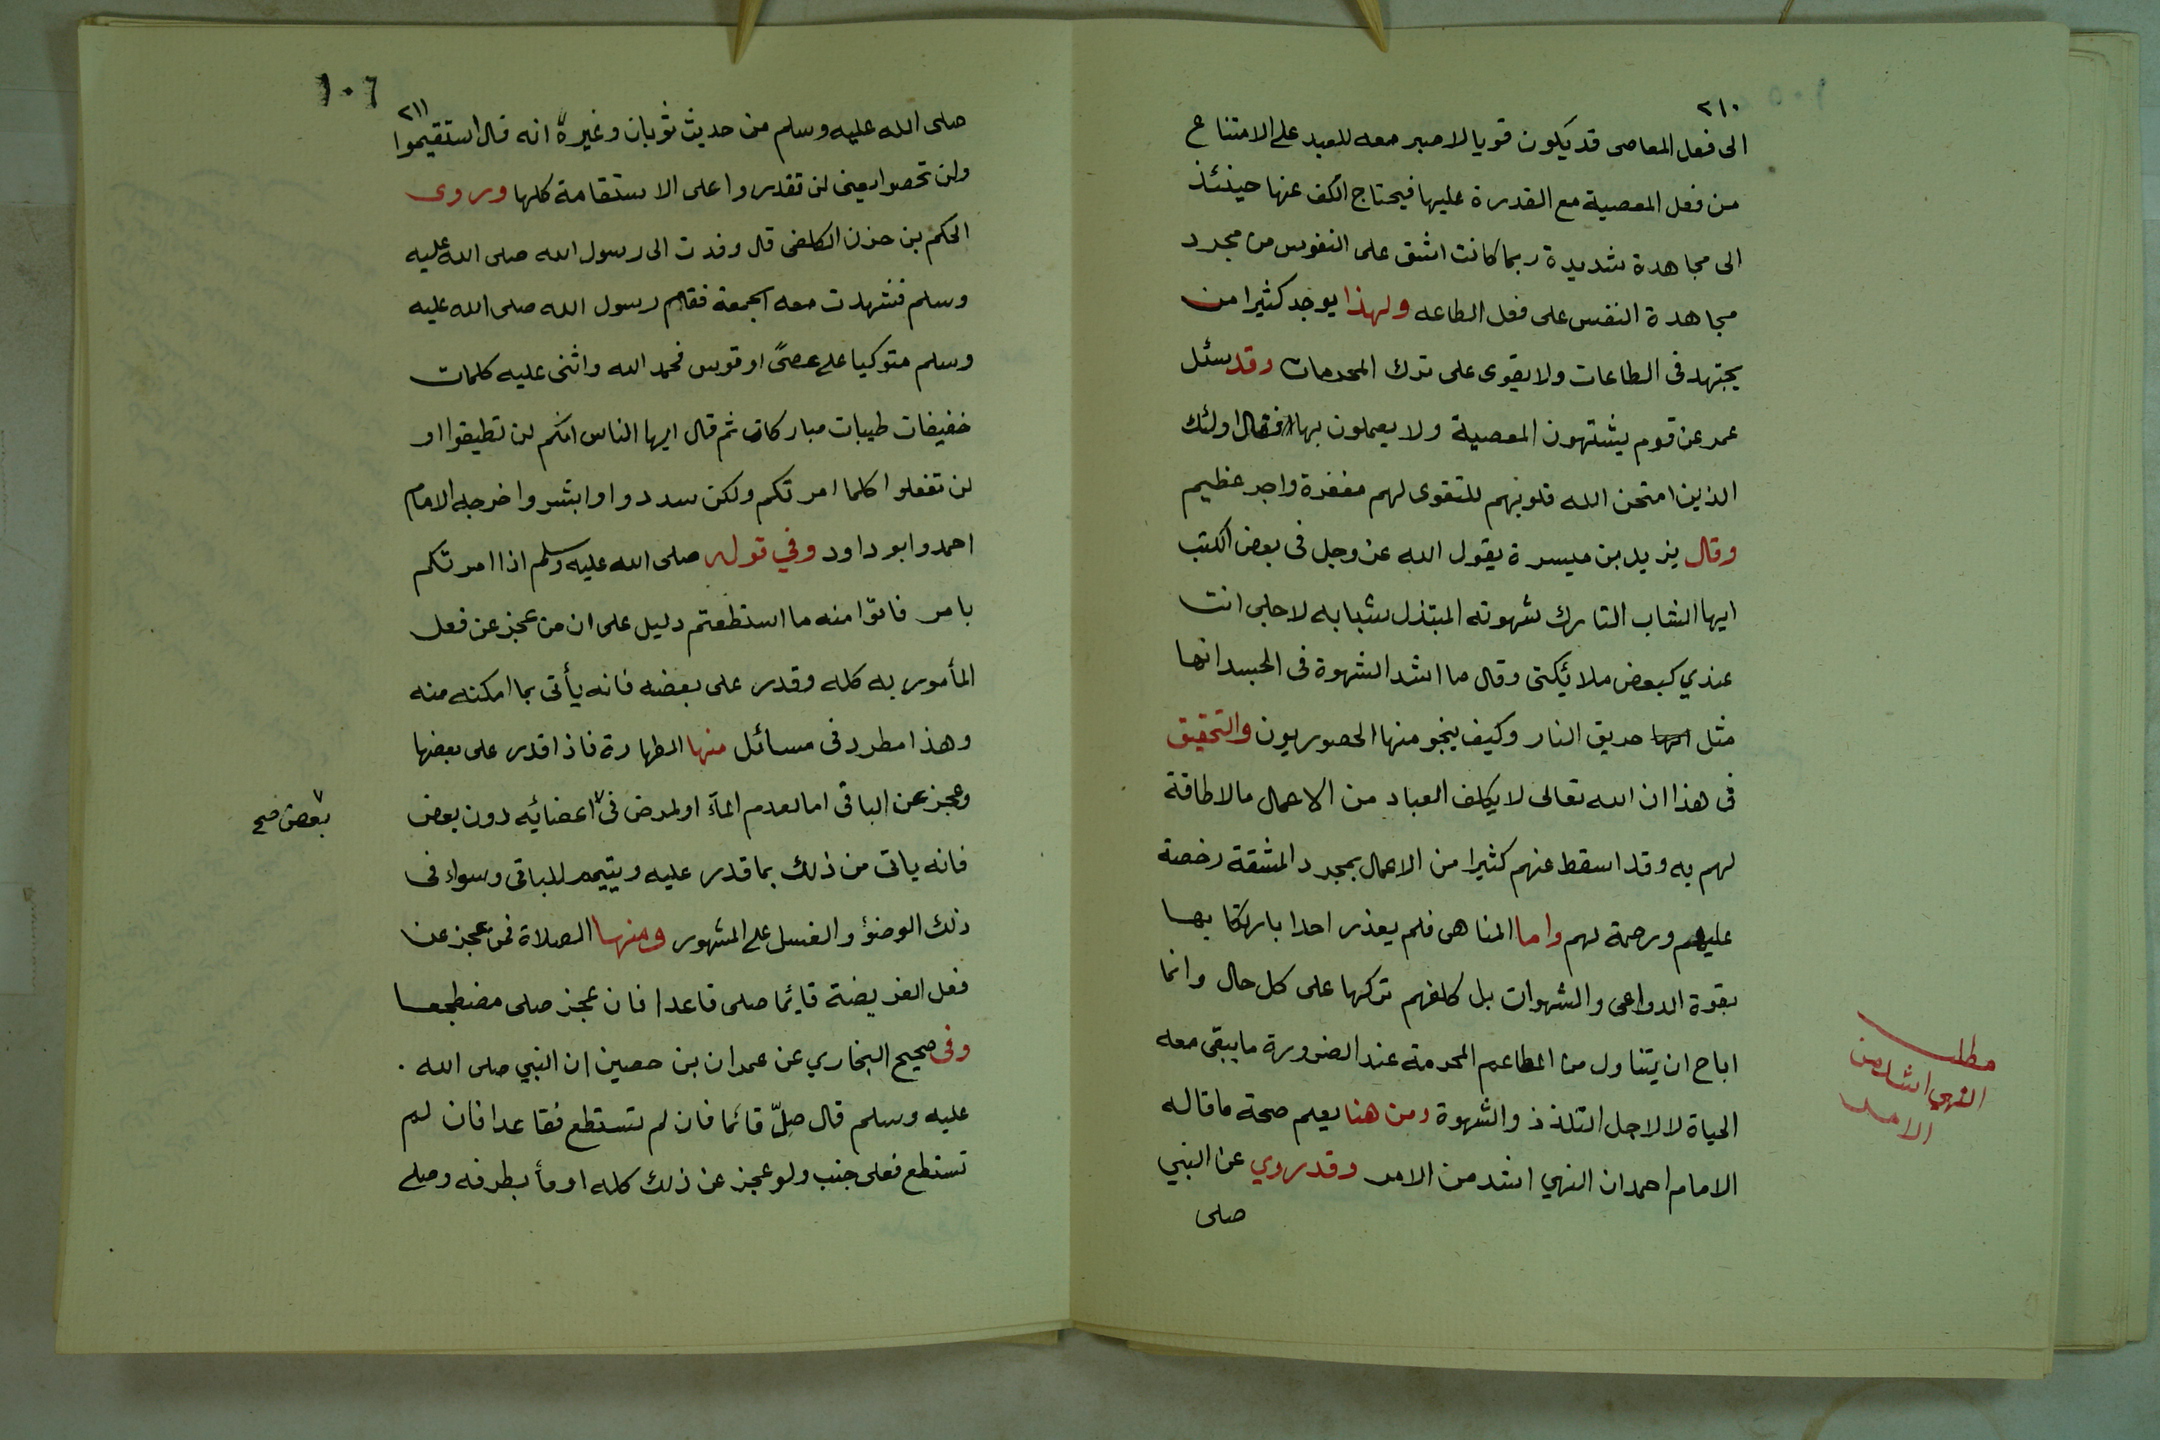 ٢١٠
الى فعل المعاصى قد يكون قويا لا صبر معه للعبد على الامتناع
من فعل المعصية مع القدرة عليها فيحتاج الكف عنها حينئذ
الى مجاهدة شديدة ربما كانت اشق على النفوس من مجرد
مجاهدة النفس على فعل الطاعه ولهذا يوجد كثيرا من
يجتهد فى الطاعات ولا يقوى على ترك المحرمات وقد سئل
عمر عن قوم يشتهون المعصية ولا يعملون بها فقال اولئك
الذين امتحن الله قلوبهم للتقوى لهم مغفرة واجر عظيم
وقال يزيد بن ميسرة يقول الله عز وجل فى بعض الكتب
ايها الشاب التارك شهوته المبتذل شبابه لاجلى انت
عندي كبعض ملائكتى وقال ما اشد الشهوة فى الجسد انها
مثل حريق النار وكيف ينجو منها الحصوريون والتحقيق
فى هذا ان الله تعالى لا يكلف العباد من الاعمال مالا طاقة
لهم به وقد اسقط عنهم كثيرا من الاعمال بمجرد المشقة رخصة
عليهم ورحمة لهم واما المناهى فلم يعذر احدا بارتكابها
بقوة الدواعى والشهوات بل كلفهم تركها على كل حال وانما
اباح ان يتناول من المطاعم المحرمة عند الضرورة ما يبقى معه
الحياة لا لاجل التلذذ والشهوة ومن هنا يعلم صحة ما قاله
الامام احمد ان النهي اشد من الامر وقد روي عن النبي
صلى
مطلب
النهي اشد من
الامر
١٠٦
٢١١
صلى الله عليه وسلم من حديث ثوبان وغيره انه قال استقيموا
ولن تحصوا يعنى لن تقدروا على الاستقامة كلها وروى
الحكم بن حزن الكلفى قال وفدت الى رسول الله صلى الله عليه
وسلم فشهدت معه الجمعة فقام رسول الله صلى الله عليه
وسلم متوكيا على عصىً او قوس فحمد الله واثنى عليه كلمات
خفيفات طيبات مباركات ثم قال ايها الناس انكم لن تطيقوا او
لن تفعلوا كلما امرتكم ولكن سددوا وابشروا خرجه الامام
احمد وابو داود وفي قوله صلى الله عليه وسلم اذا امرتكم
بامر فاتوا منه ما استطعتم دليل على ان من عجز عن فعل
المأمور به كله وقدر على بعضه فانه يأتى بما امكنه منه
وهذا مطرد فى مسائل منها الطهارة فاذا قدر على بعضها
وعجز عن الباقى اما لعدم الماء او لمرض فى اعضائه دون بعض
بعض صح
فانه ياتى من ذلك بما قدر عليه ويتيمم للباقى وسواء فى
ذلك الوضوء والغسل على المشهور ومنها الصلاة فمن عجز عن
فعل الفريضة قايما صلى قاعدا فان عجز صلى مضطجعا
وفى صحيح البخاري عن عمران بن حصين ان النبي صلى الله .
عليه وسلم قال صلّ قائما فان لم تستطع فقاعدا فان لم
تستطع فعلى جنب ولو عجز عن ذلك كله اومأ بطرفه وصلى